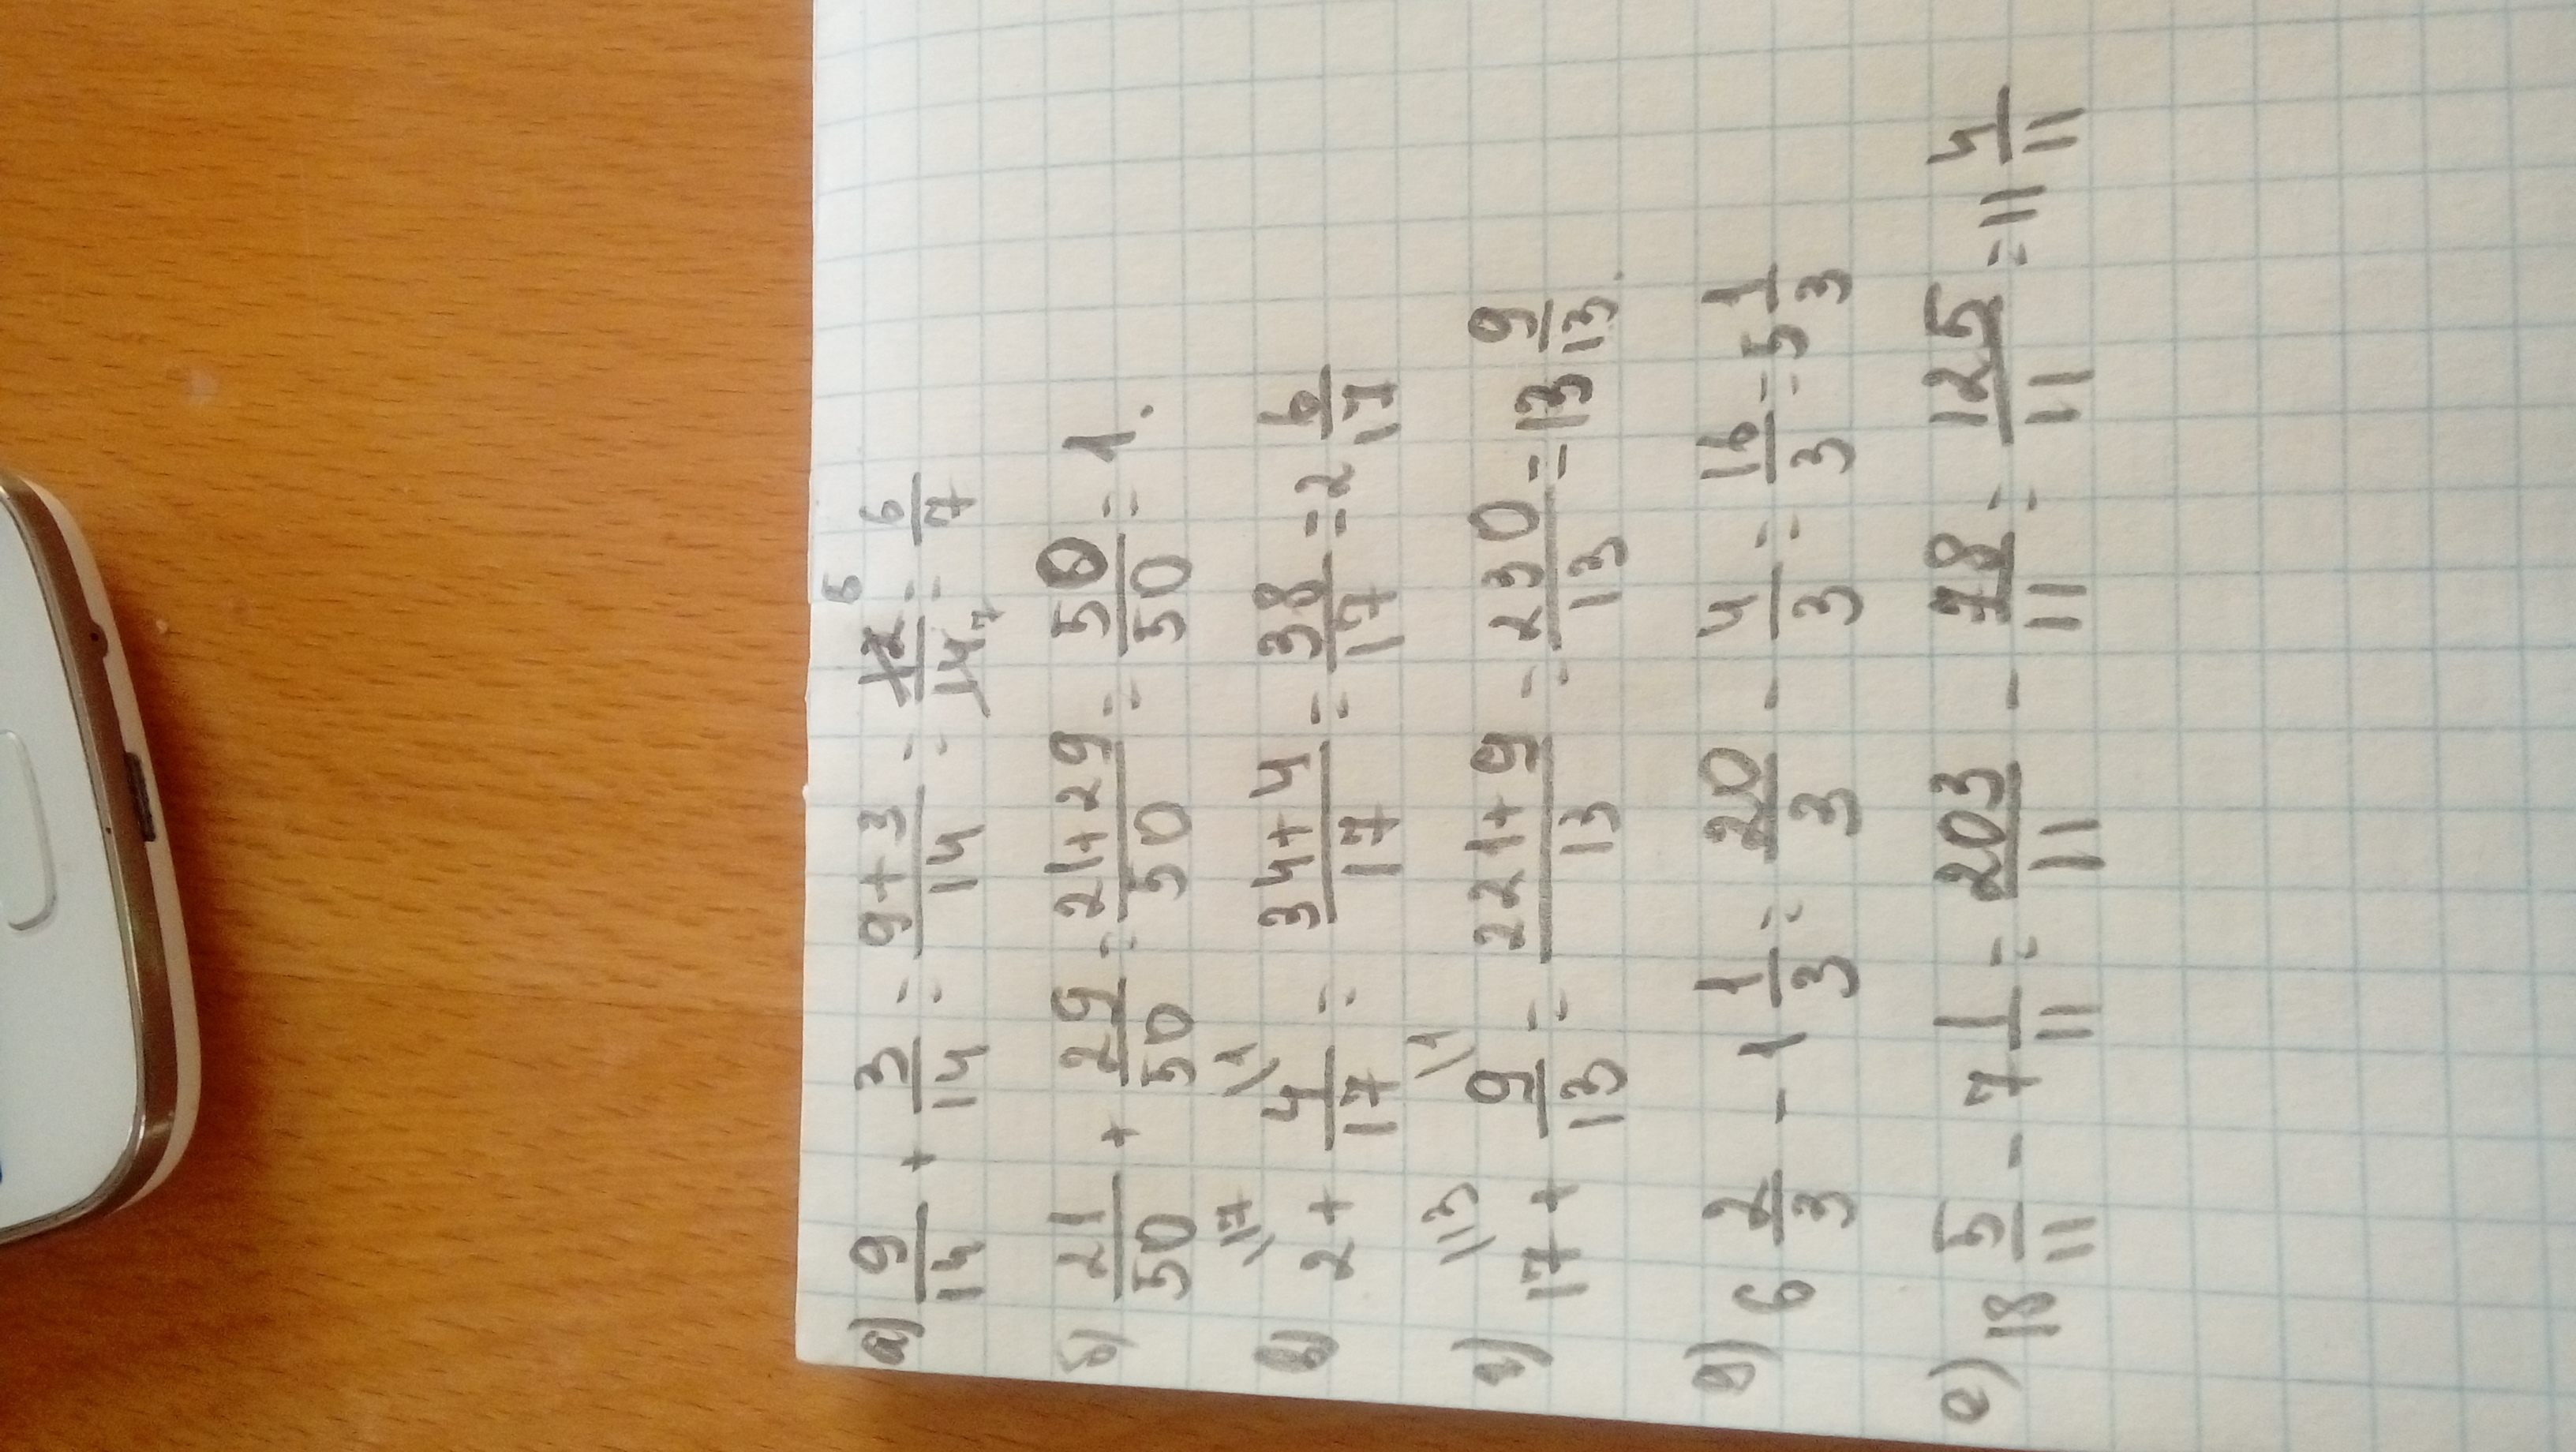 а) 9/14 + 3/14 = 9+3/14 = 12/14 = 6/7
б) 21/50 + 29/50 = 21+29/50 = 50/50 = 1.
в) 2 + 4/17 = 34+4/17 = 38/17 = 2 6/17
г) 17 + 9/13 = 221+9/13 = 230/13 = 13 9/13.
д) 6 2/3 - 1 1/3 = 20/3 - 4/3 = 16/3 = 5 1/3
е) 18 5/11 - 7 1/11 = 203/11 - 78/11 = 125/11 = 11 4/11